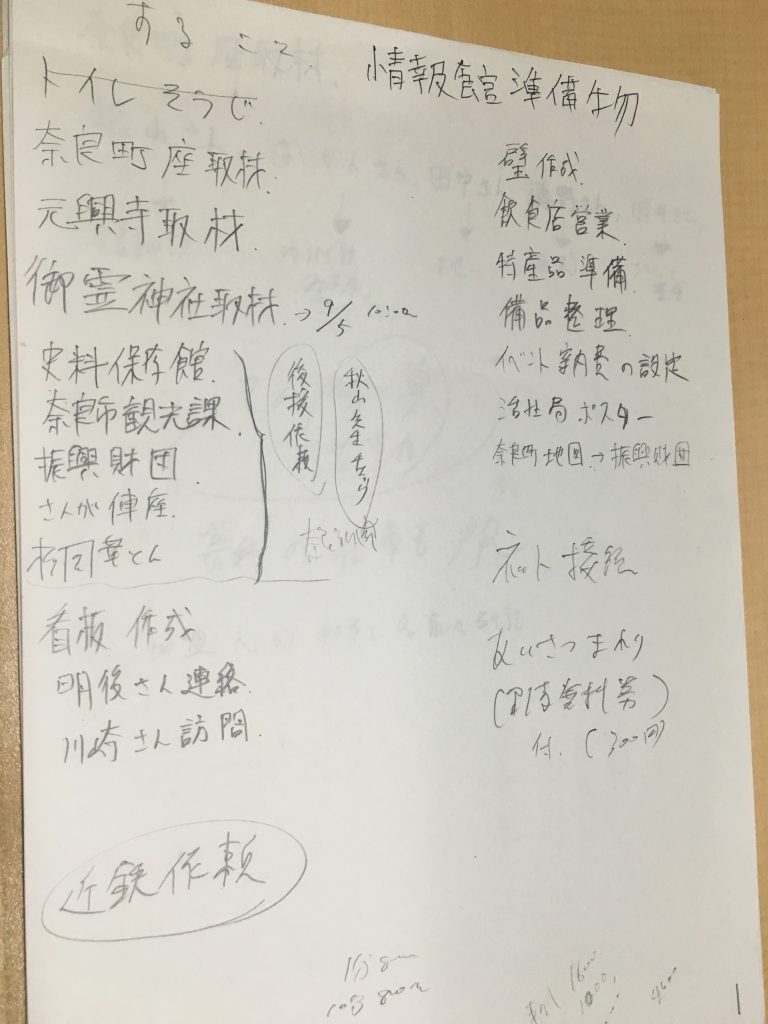 する こと
トイレそうじ
奈良町座取材
元興寺取材
御霊神社取材 → 9/5 10:00
史料保存館
奈良市観光課
振興財団
さんが俥座
後援依頼
秋山先生チェック
看板 作成
明後さん連絡
川崎さん訪問
近鉄依頼
情報館準備物
壁作成
飲食店営業
特産品準備
備品整理
イベント室内費の設定
活性局 ポスター
奈良町地図 → 振興財団
ネット接続
あいさつまわり
付. (300円